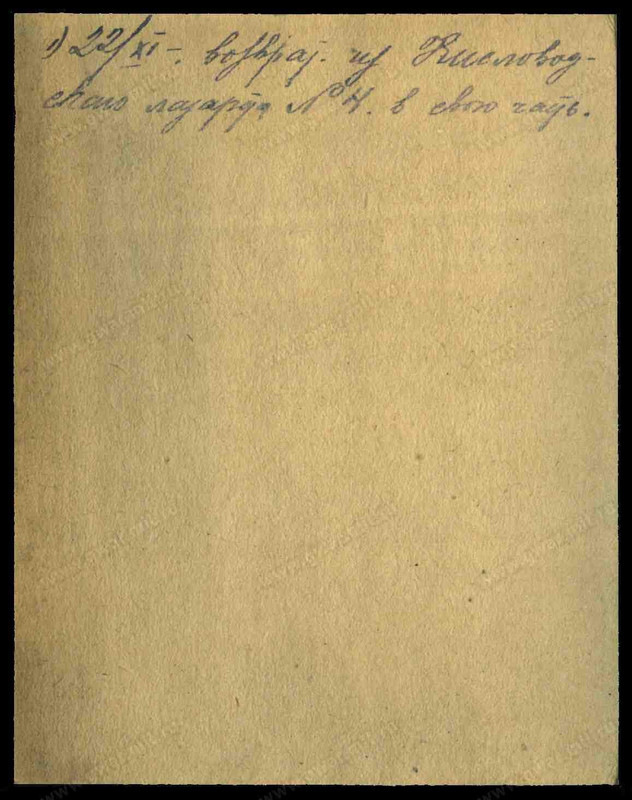 1) 22/XI –. возвращ. из Кисловод-
ского лазарета № 4. в свою часть.